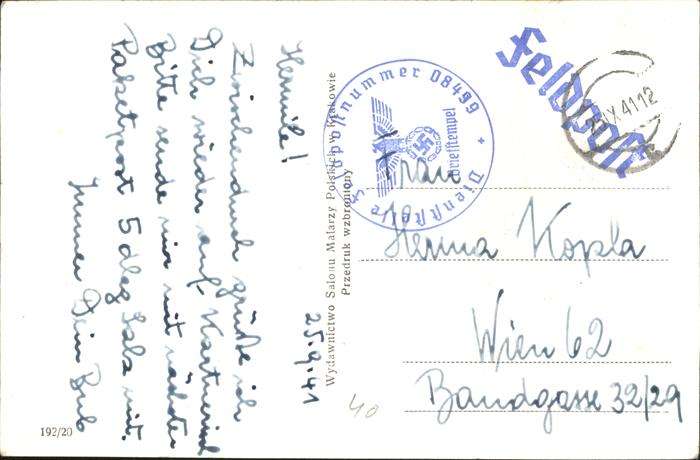 Hermerle!
Zwischendurch grüße ich
Dich wieder auf Kartverierl
Bitte sende mir mit nächster
Paketpost 5 dkg Salz mit.
Immer Dein Bub
25.9.41
Wydawnictwo Salonu Malarzy Polskich w Krakowie
Przedruk wzbroniony
192/20
40
Feldpost
IX 41 12
Dienststelle Feldpostnummer 08499
Briefstempel
Frau
Herma Kopla
Wien 62
Bandgasse 32/29